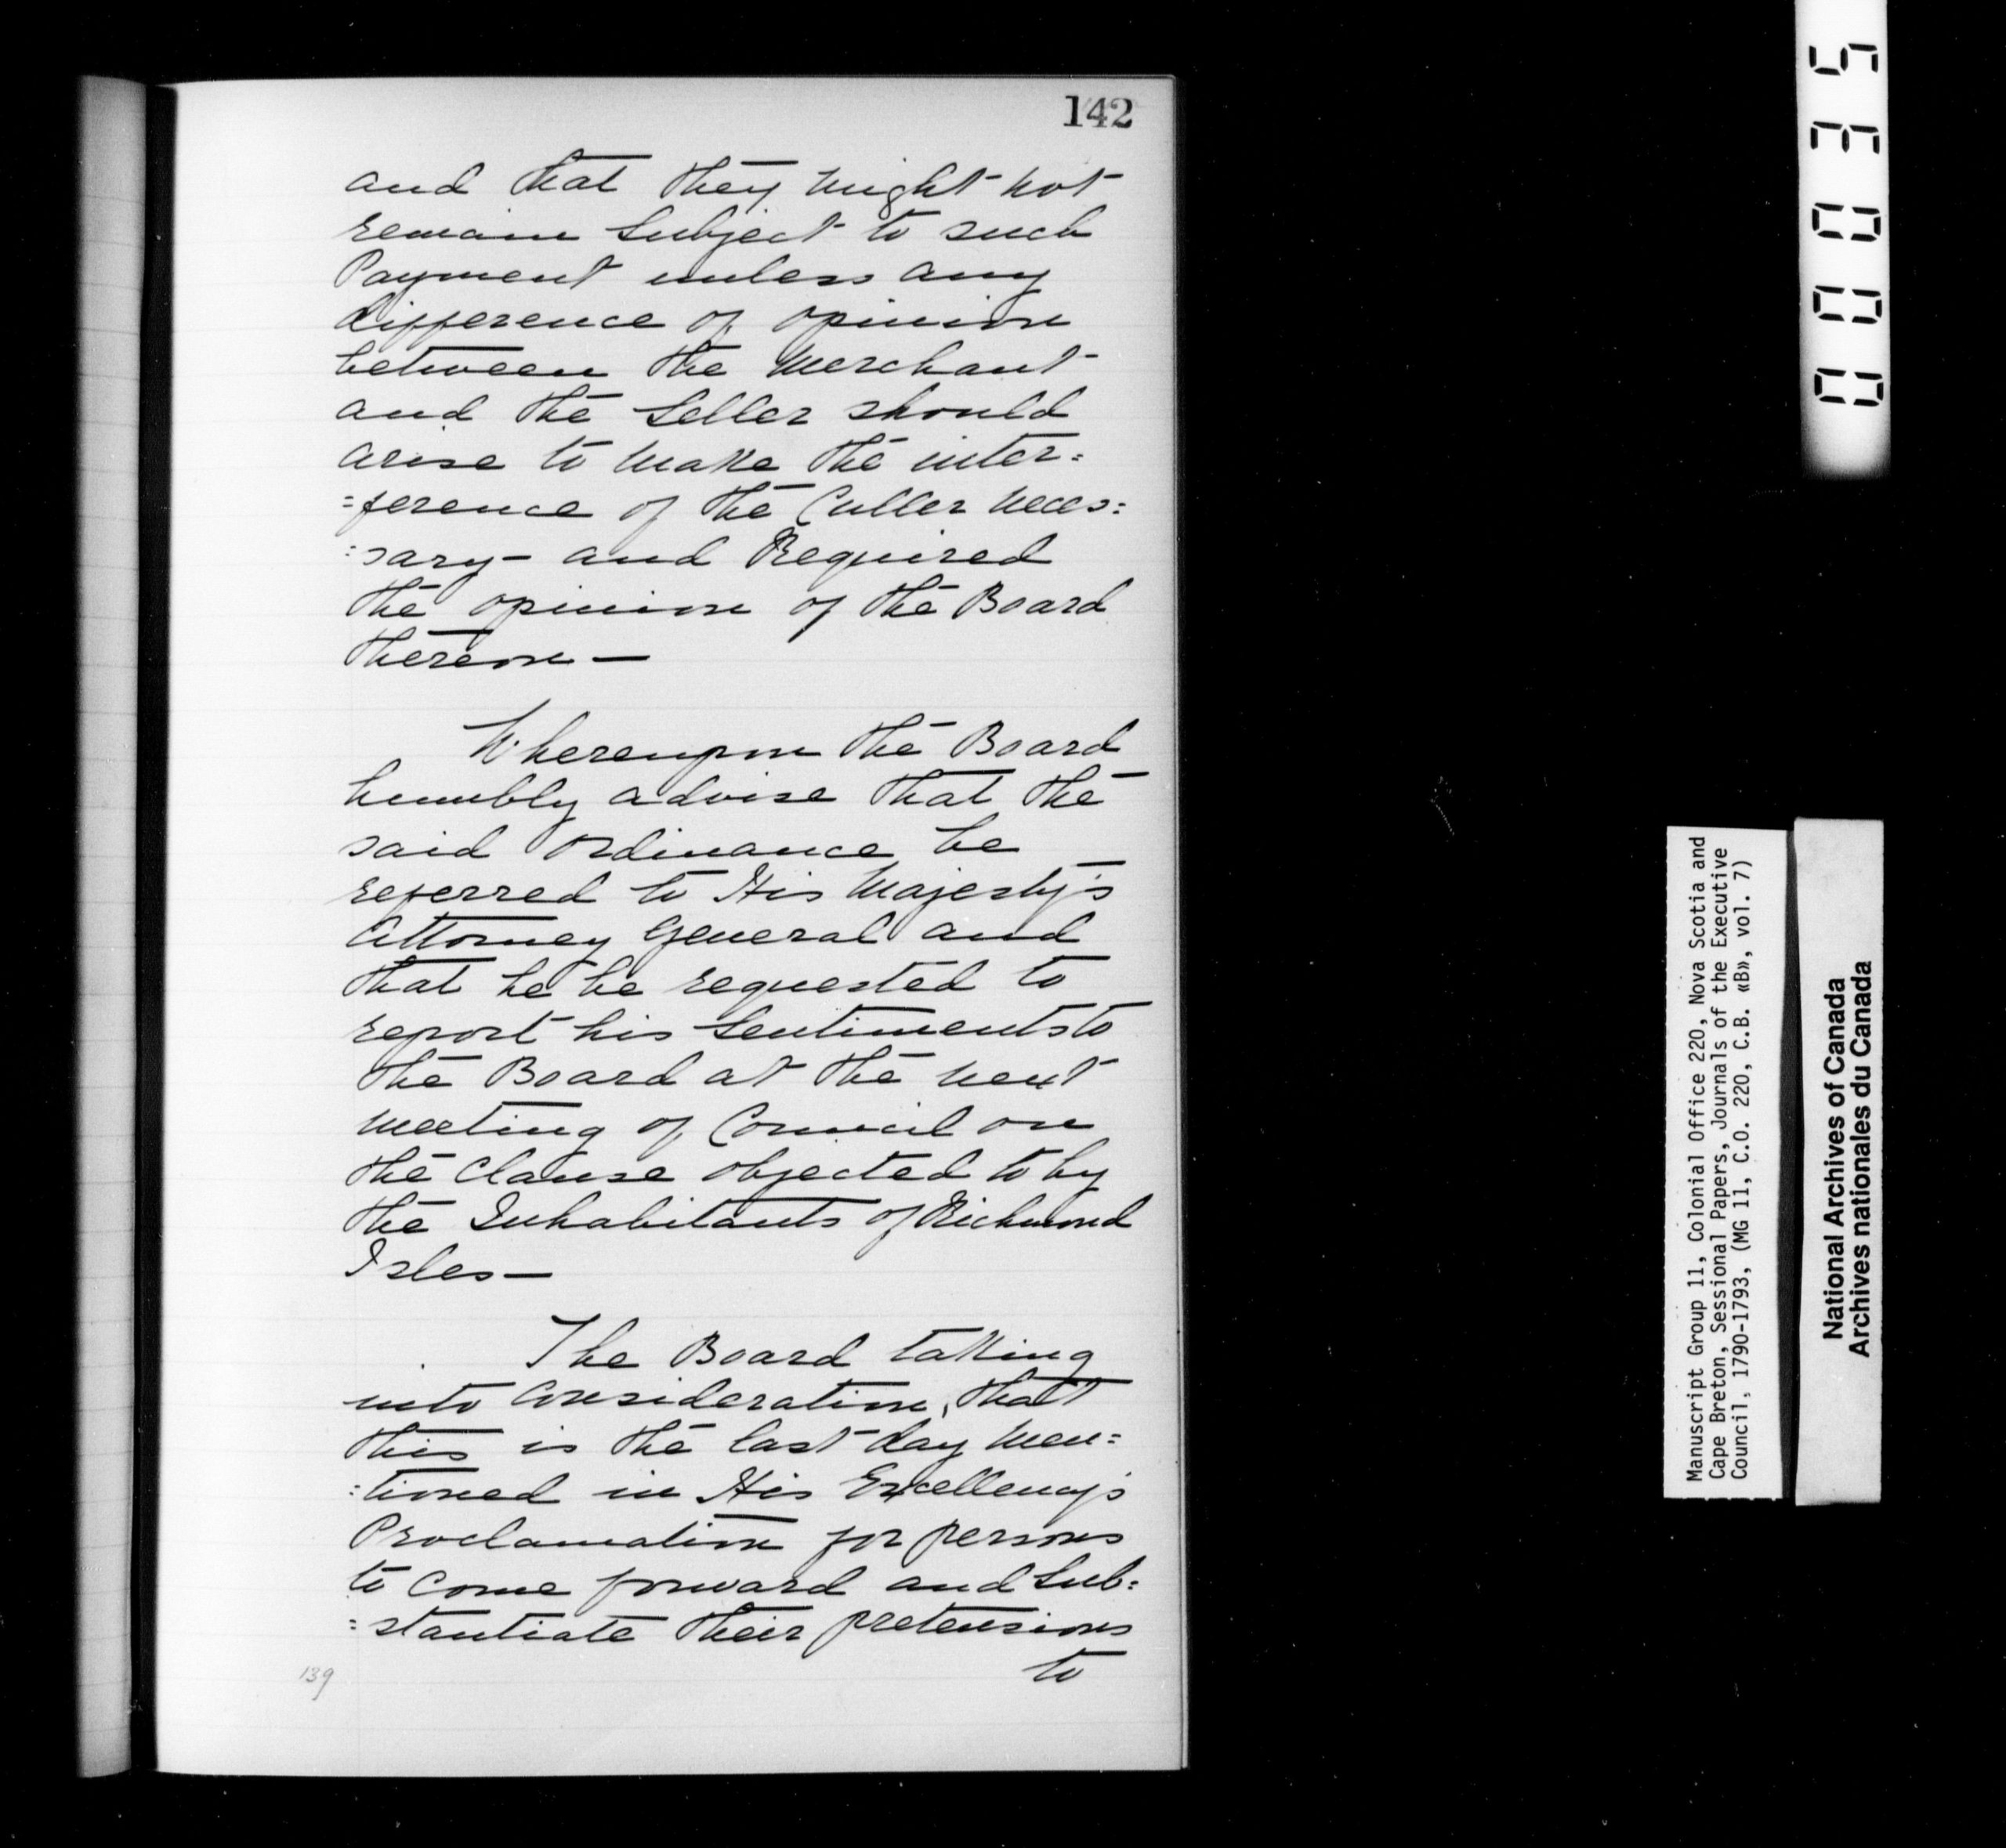 142
and that they might not
remain Subject to such
Payment unless any
difference of opinion
between the Merchant
and the Seller should
arise to make the inter=
=ference of the Culler neces:
:sary- and Required
the opinion of the Board
thereon —
Whereupon the Board
humbly advise that the
said Ordinance be
referred to His Majesty's
Attorney General and
that he be requested to
report his Sentiments to
the Board at the next
meeting of Council on
the Clause objected to by
the Inhabitants of Richmond
Isles —
The Board taking
into Consideration, that
this is the last day men=
:tioned in His Excellency's
Proclamation for persons
to come forward and Sub=
=stantiate their pretensions
to
139
00035
Manuscript Group 11, Colonial Office 220, Nova Scotia and
Cape Breton, Sessional Papers, Journals of the Executive
Council, 1790-1793, (MG 11, C.O. 220, C.B. «B», vol. 7)
National Archives of Canada
Archives nationales du Canada